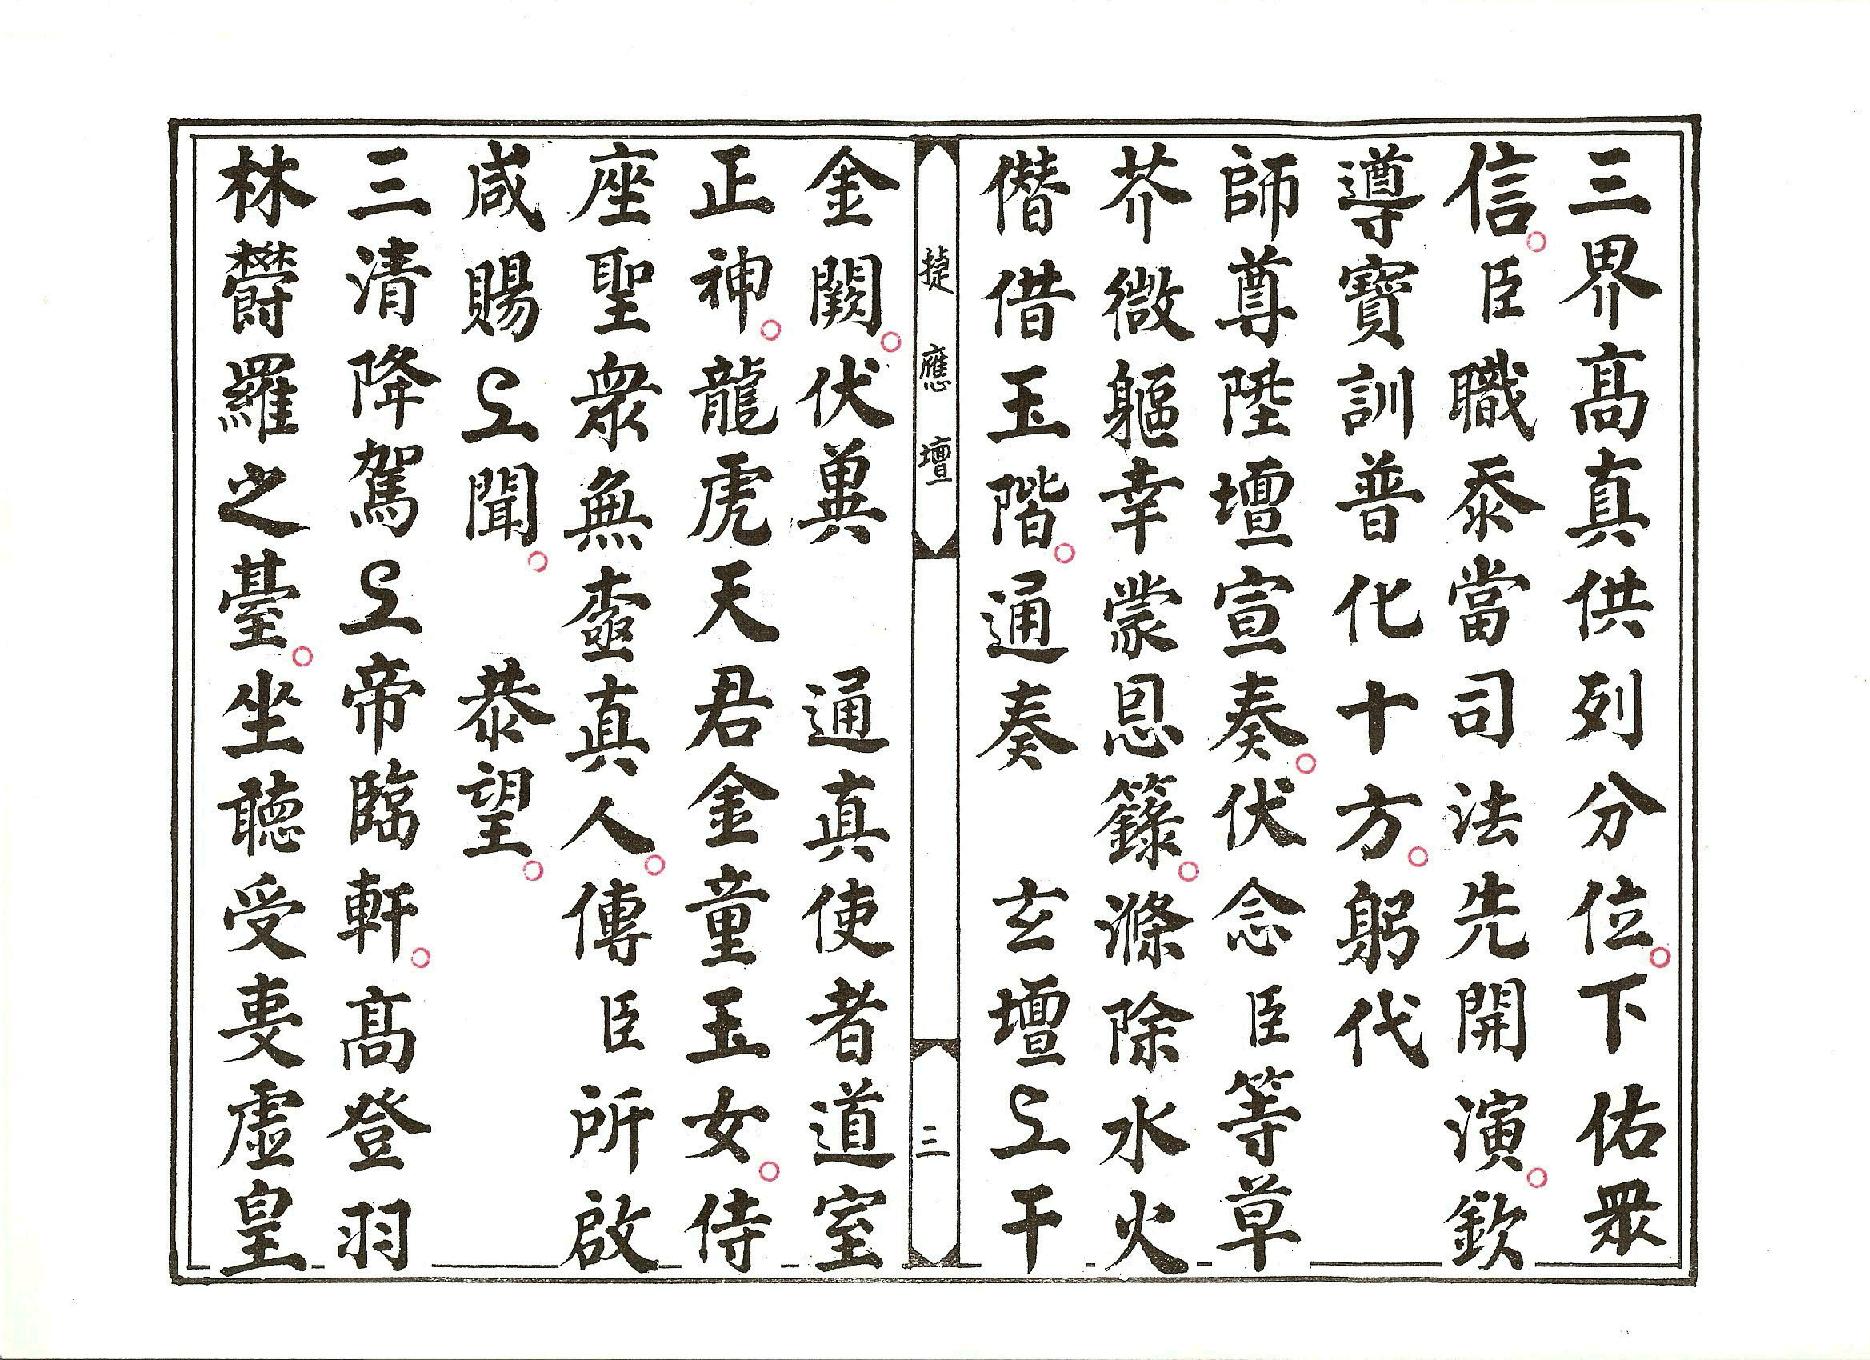 三界髙真供列分位。下佑眾
信。臣職忝當司法先開演。欽
遵寶訓普化十方。躬代
師尊陞壇宣奏。伏念臣等草
芥微軀幸蒙恩籙。滌除水火
僭借玉階。通奏　玄壇上干
捷應壇
三
金闕。伏冀　通真使者道室
正神。龍虎天君金童玉女。侍
座聖眾無真人。傳臣所啟
咸賜上聞。　恭望。
三清降駕上帝臨軒。髙登羽
林欝羅之臺。坐聽受虛皇